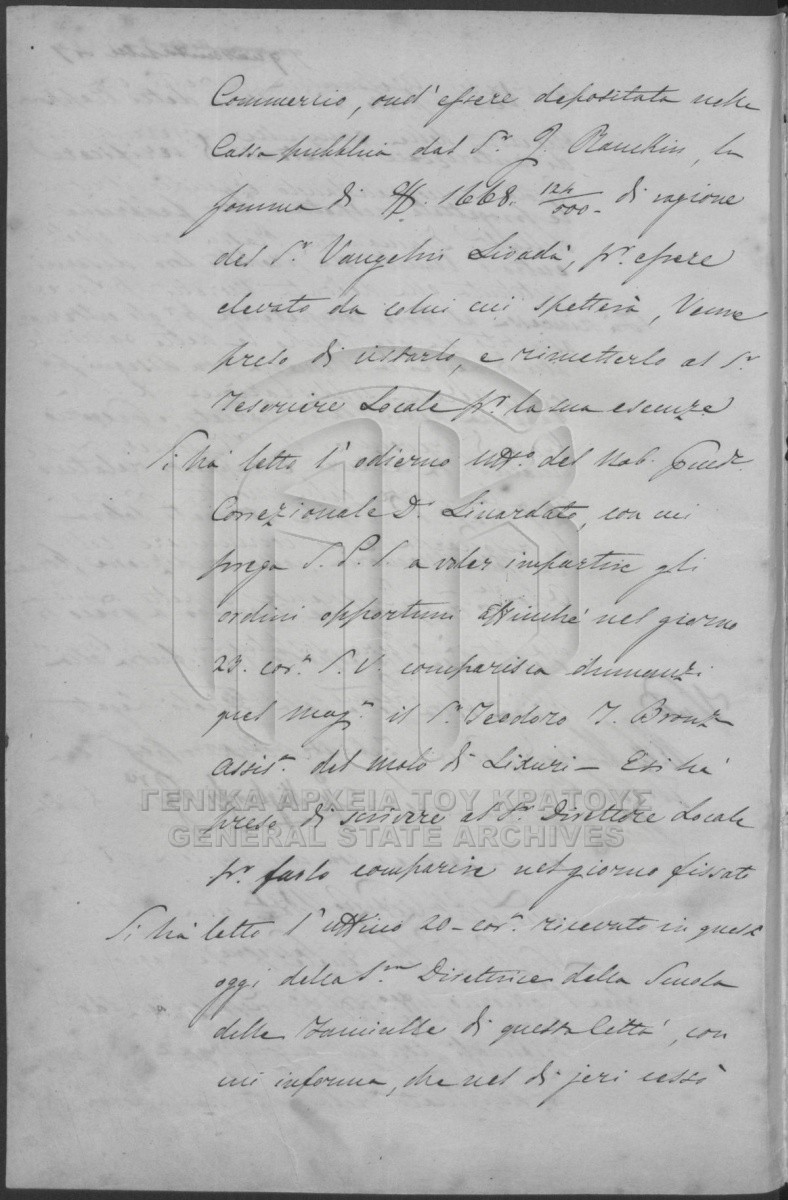 Commercio, ond' essere depositata nella
Cassa pubblica dal Sr. J. la
somma di 1668. 124/000 di ragione
del Sr. Vangelin Livadà, pr. essere
elevato da colui cui spetterà, Venne
preso di vistarlo, e rimetterlo al Sr.
Tesoriere Locale pr. la sua
Si ha letto l' odierno uffo. del Nob. Giud.
Correzionale Dr. Linardato, con cui
prega S. P. S. a voler impartire gli
ordini opportuni affinché nel giorno
23. corr. S. V. comparisca dinnanzi
quel Magn. il Sr. Teodoro J.
Assit. del molo di Lixuri – E si ha
preso di scrivere al Sr. Direttore Locale
pr. farlo comparire nel giorno fissato
Si ha letto l' ufficio 20 – corr. ricevuto in quest'
oggi della Sra. Direttrice della Scuola
delle Fanciulle di questa Città, con
cui informa, che nel dì jeri cessò
ΓΕΝΙΚΑ ΑΡΧΕΙΑ ΤΟΥ ΚΡΑΤΟΥΣ
GENERAL STATE ARCHIVES